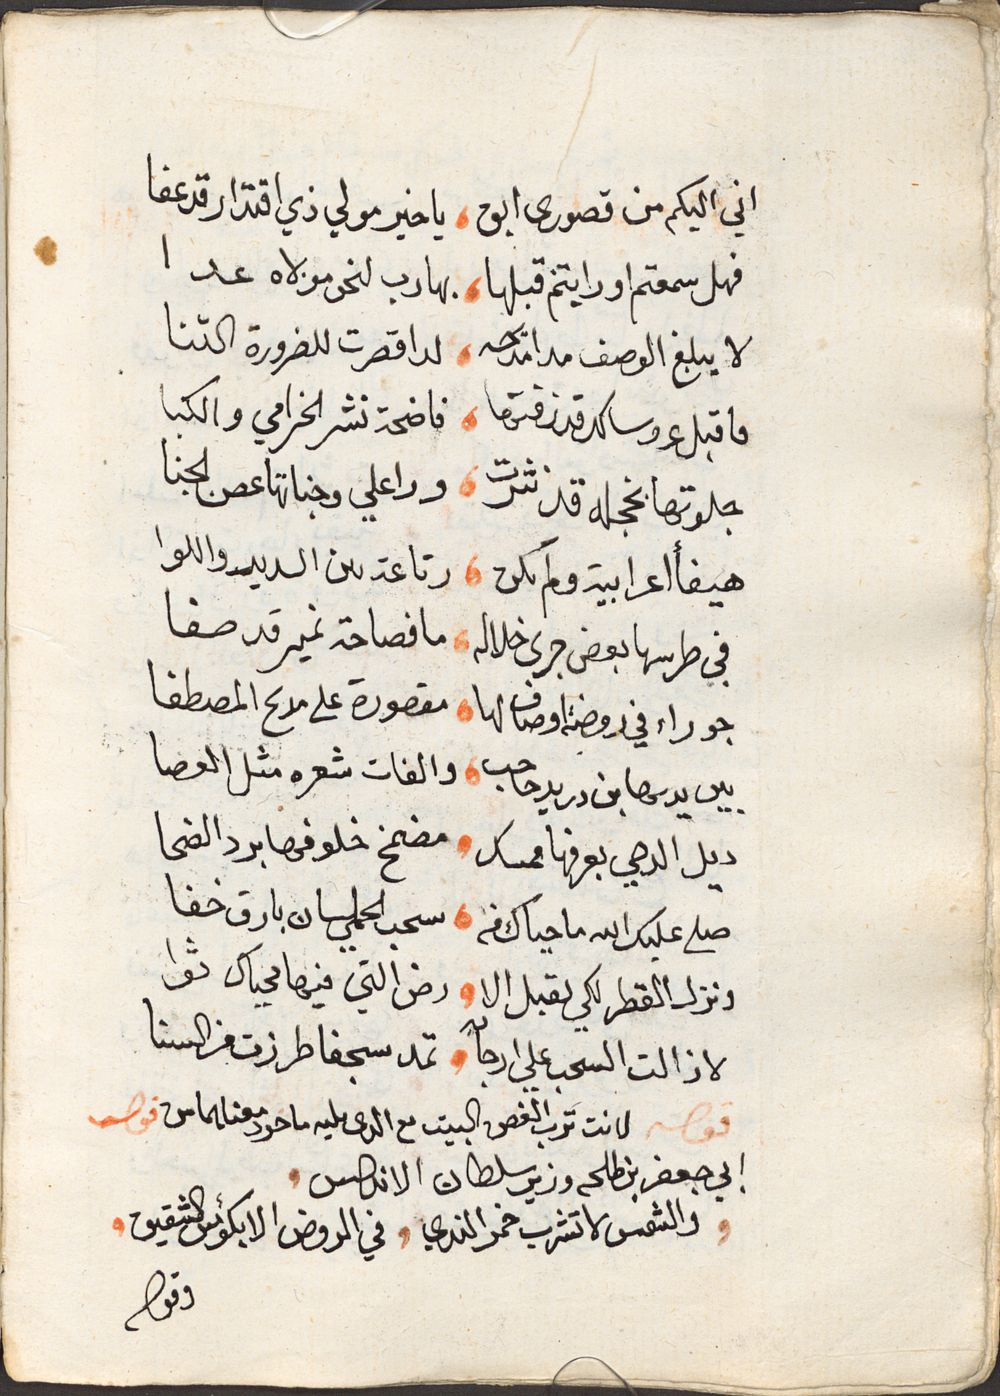 اني اليكم من قصورى ابق ، ياخير مولي ذي اقتدار قد عفا
فهل سمعتم او رايتم قبلها ، بهارب لنحو مولاه عدا
لا يبلغ الوصف مدا مدحه ، لدا قصرت للضرورة الثنا
فاقبل عروسا قد زففتها ، فاضحة نشر الخزامي والكبا
جلوتها بخجله قد نثرت ، وردا علي وجناتها غصن الجنا
هيفأ اعرابية ولم تكن ، رتاعة بين السدير واللوا
في طرسها بعض جرى خلاله ، ما فصاحة نمير قد صفا
جوراء في روضة اوصاف لها ، مقصورة على مدح المصطفا
بين يديها بن دريد حاجب ، والفات شعره مثل العصا
ديل الدجي بعرفها ممسك ، مضمخ خلوفها برد الضحا
صلي عليك الله ما حياك فه ، سحب الحمي لسان بارق خفا
ونزل القطر لكي يقبل الا ، رض التي فيها محياك ثوا
لا زالت السحب علي ارجا ، تمد سجفا طرزت من السنا
قوله لانت ترب الغصن البيت مع الدى يليه ماخود معناهما من قول
ابي جعفر بن طلحه وزير سلطان الاندلس ،
، والشمس لا تشرب خمر الندي ، في الروض الا بكؤس الشقيق ،
وقوله